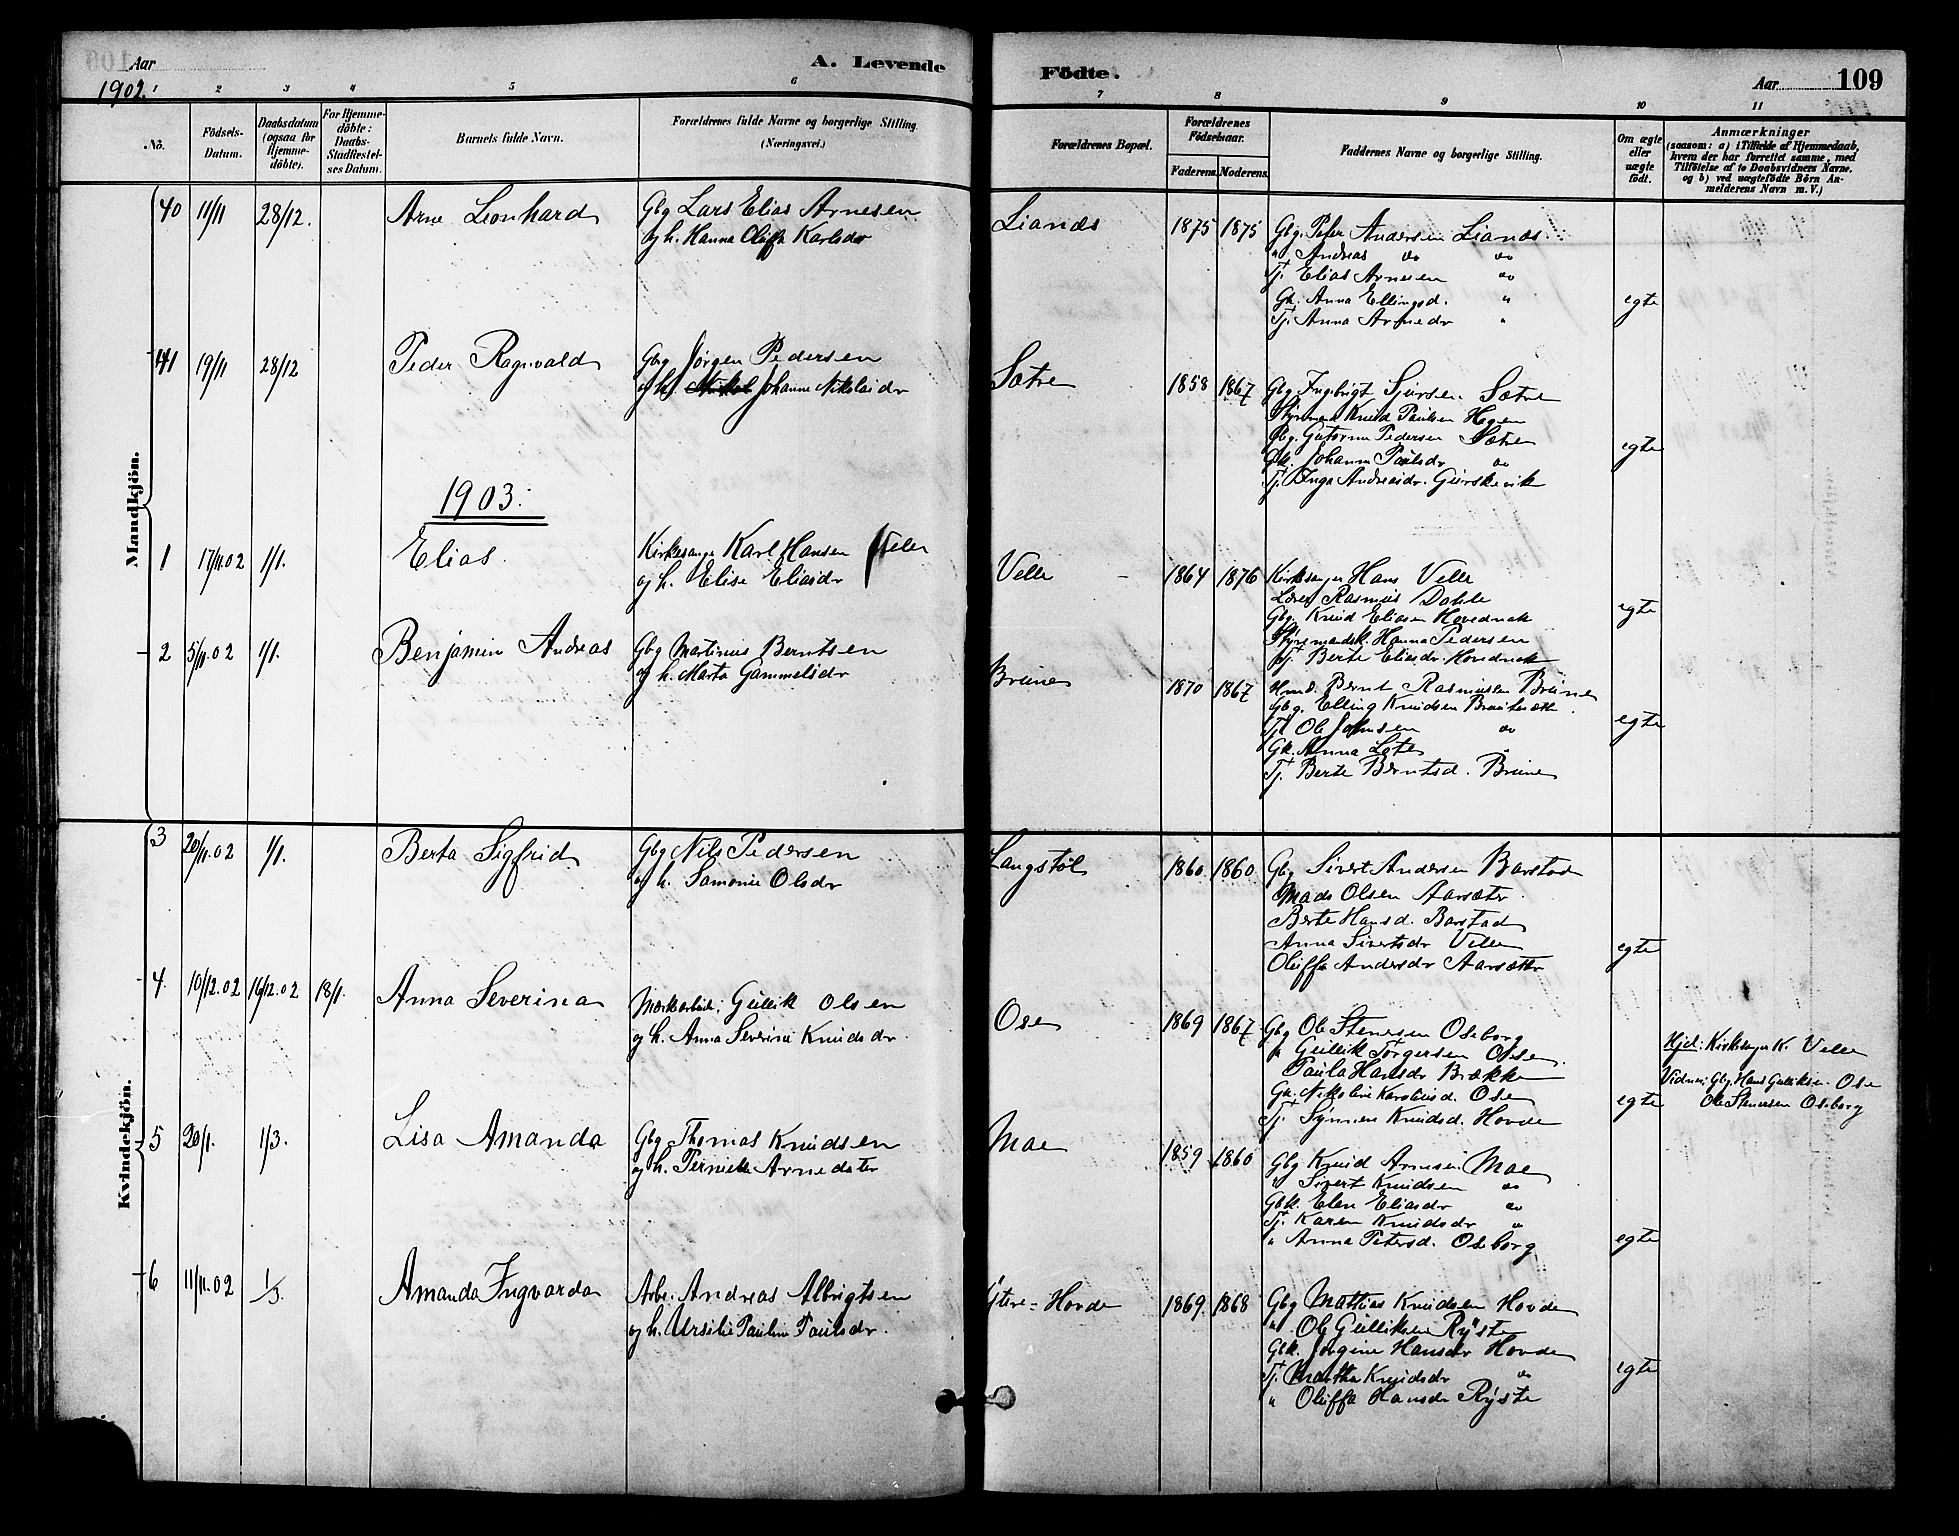 Aar
1902.
A. Levende
Födte.
Aar
109
1 2 3 4 5 6 7 8 9 10 11
No.
Födsels-Datum.
Daabsdatum (ogsaa for Hjemme-döbte).
For Hjemme-döbte: Daabs-Stadfæstel-ses Datum.
Barnets fulde Navn.
Forældrenes fulde Navne og borgerlige Stilling. (Næringsvei.)
Forældrenes Bopæl.
Forældrenes Födselsaar.
Faderens. Moderens.
Faddernes Navne og borgerlige Stilling.
Om ægte eller uægte födt.
Anmærkninger
(saasom: a) i Tilfælde af Hjemmedaab,
hvem der har forrettet samme, med
Tilföielse af to Daabsvidners Navne,
og b) ved uægtefödte Börn An-
melderens Navn m. V.)
Mandkjön.
40 11/11 28/12. Arne Leonhard
Gbg Lars Elias Arnesen
og h. Hanna Oluffa Karlsdr
Liands 1875 1875
Gbg. Peter Andersen Liands.
" Andreas do do
Tj. Elias Arnesen do
Gk. Anna Ellingsd. "
Tj. Anna Arnedr "
egte
41 19/11 28/12 Peder Ragnvald
Gbg Jörgen Pedersen
og h. Johanne Nikolaidr
Sætre 1858 1867
Gbg Ingebrigt Sjursen Sætre
Styrmand Knud Paulsen Hagen
Gbg. Gutorm Pedersen Sætre
Gk. Johanne Paulsdr do
Tj. Inga Andreasdr. Gurskevik
egte
1903.
1 17/11.02 1/1. Elias.
Kirkesanger Karl Hansen Velle
og h. Elise Eliasdr
Velle 1864 1876
Kirkesanger Hans Velle
Lærer Rasmus Dahle
Gbg. Knud Eliasen Hovednak
Styrmandsk. Hanna Pedersen
Tj. Berte Eliasdr. Hovednak
egte
2 5/11.02 1/1. Benjamin Andreas
Gbg Martinus Berntsen
og h. Marta Gammelsdr
Brune 1870 1867
Bernt Rasmussen Brune
Gbg. Elling Knudsen
Tj. Ole Johnsen do
Gk. Anna Lote
Tj. Berte Berntsd. Brune
egte
Kvindekjön.
3 20/11.02 1/1. Berta Sigfrid
Gbg Nils Pedersen
og h. Samonie Olsdr
Langstöl 1860. 1860
Gbg Sivert Andersen Barstad
Mads Olsen Aarsæter
Berte Hansd. Barstad
Anna Sivertsdr Velle
Oluffa Andersdr Aarsæter
egte
4. 10/12.02 16/12.02 18/1. Anna Severina
Markarbeid. Gullik Olsen
og h. Anna Severine Knudsdr.
Ose 1869 1867
Gbg Ole Stenersen Oseborg
" Gullik Torgersen Ose
Paula Hansdr Brække
Gk. Nikoline Karolusd. Ose
Tj. Synnøve Knudsd. Hovde
egte
Hjd: Kirkesanger K. Velle
Vidner: Gbg. Hans Gulliksen Ose
Ole Stenersen Oseborg
5 20/1. 1/3. Lisa Amanda
Gbg Thomas Knudsen
og h. Pernille Arnedatter
Moe 1859 1860
Gbg Knud Arnesen Moe
" Sivert Knudsen do
Gbk. Elen Eliasdr do
Tj. Karen Knudsdr "
" Anna Petersd. Oseborg
egte
6 11/11.02 1/3. Amanda Ingvarda
Arb. Andreas Albrigtsen
og h. Ursilie Pauline Paulsdr.
Ytre-Hovde 1869. 1868
Gbg Mathias Knudsen Hovde
" Ole Gulliksen Ryste
Gbk. Jörgine Hansdr Hovde
Tj. Martha Knudsdr do
" Oluffa Hansdr Ryste
egte